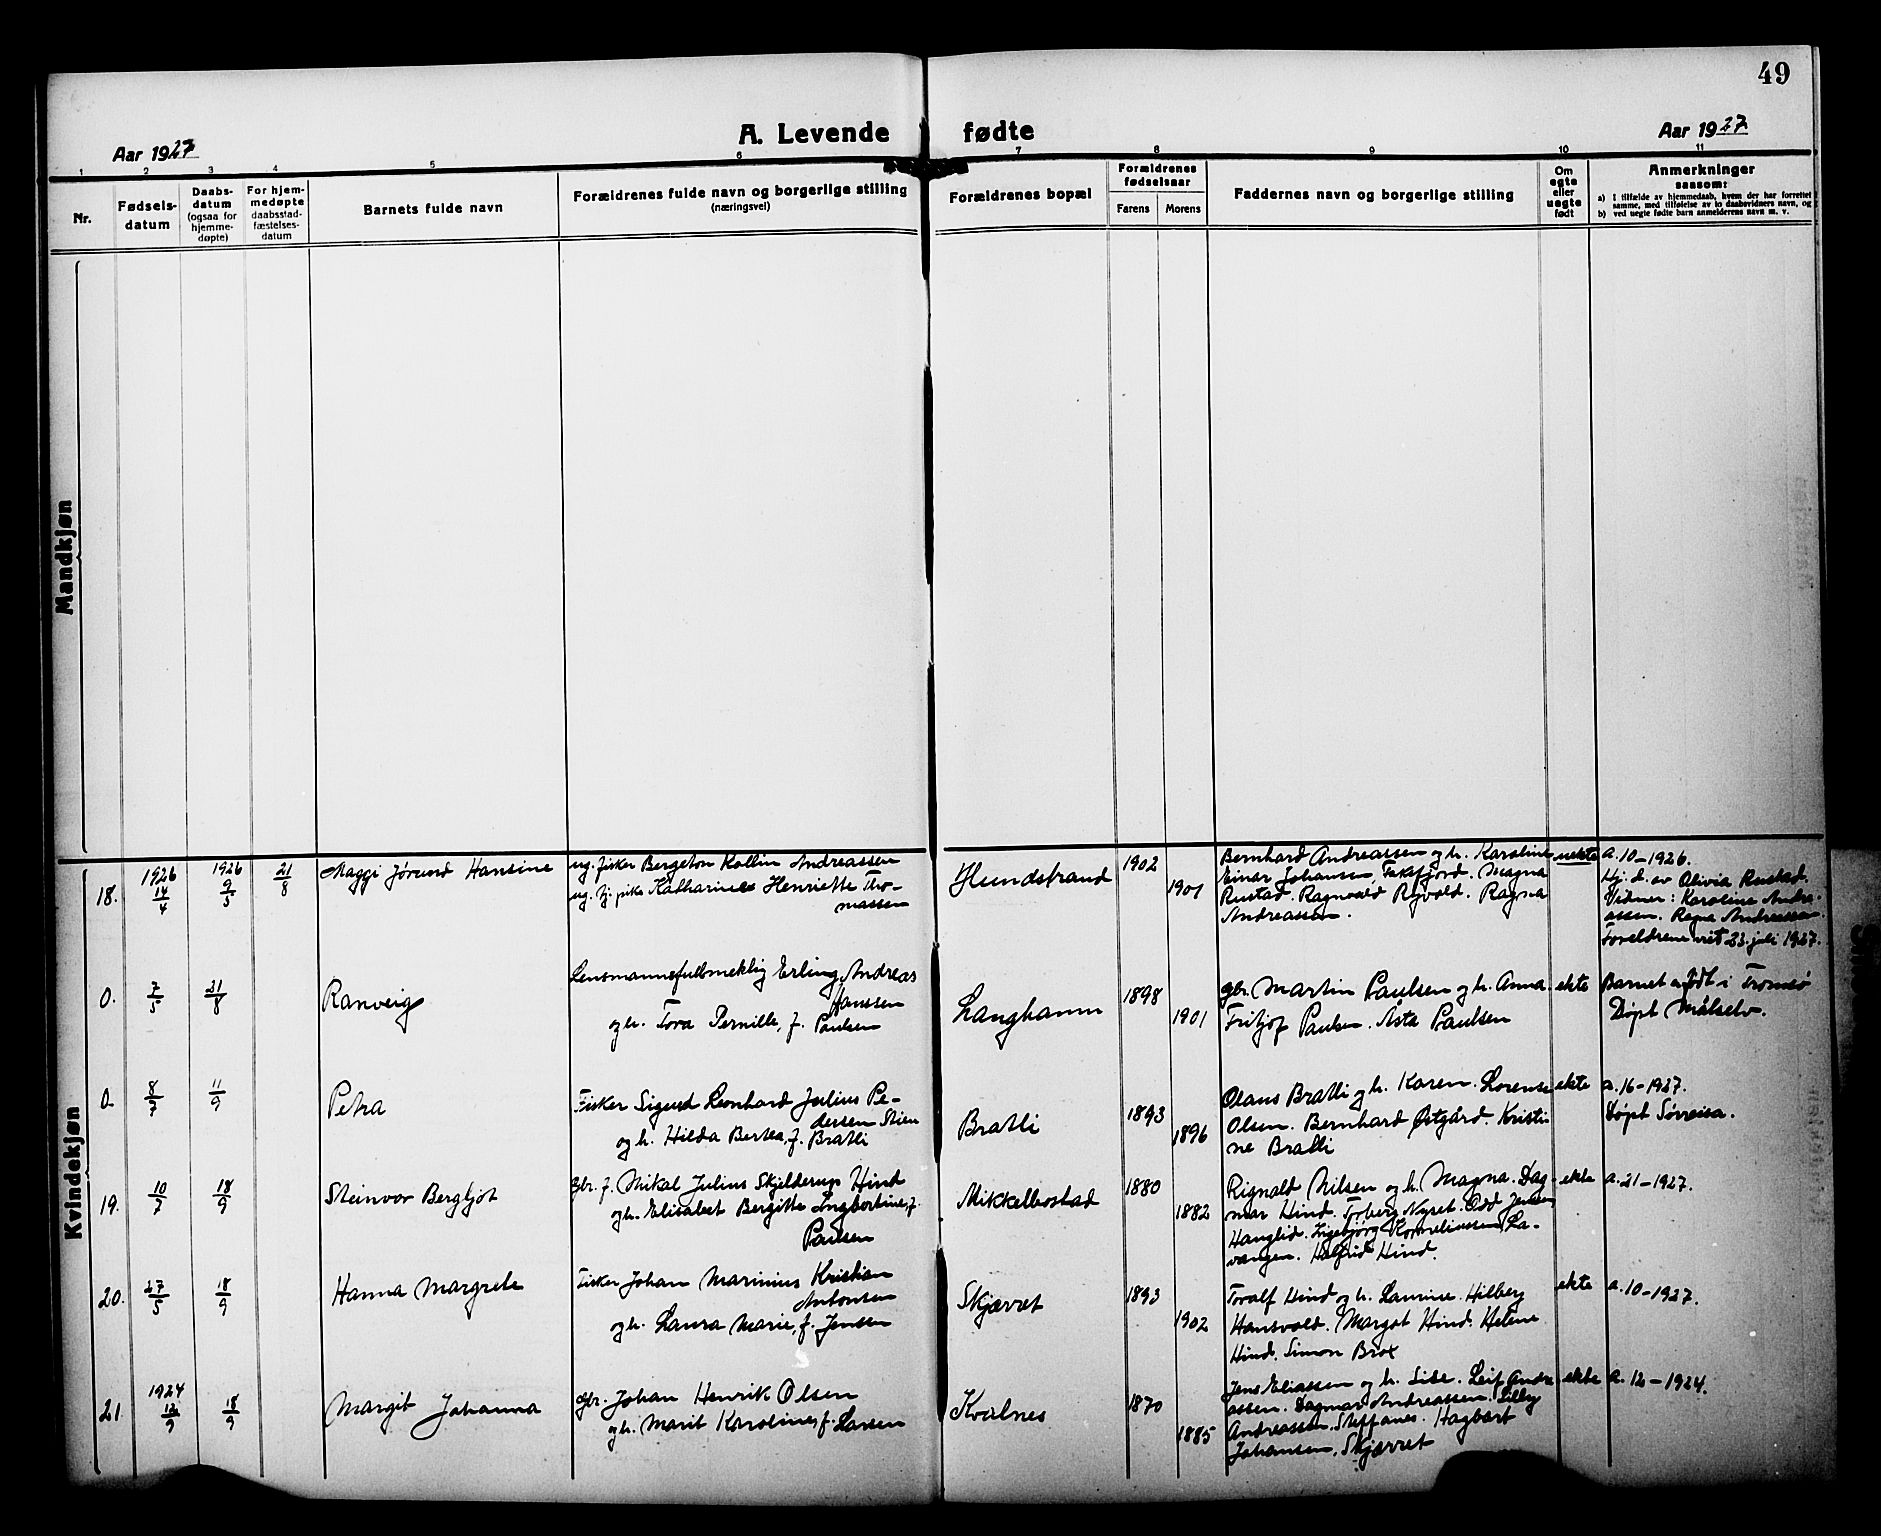 49
Aar 1927
A. Levende fødte
Aar 1927
1 2 3 4 5 6 7 8 9 10 11
Nr.
Fødsels-
datum
Daabs-
datum
(ogsaa for
hjemme-
døpte)
For hjem-
medøpte
daabsstad-
fæstelses-
datum
Barnets fulde navn
Forældrenes fulde navn og borgerlige stilling
(næringsvei)
Forældrenes bopæl
Forældrenes
fødselsaar
Farens Morens
Faddernes navn og borgerlige stilling
Om
egte
eller
uegte
født
Anmerkninger
saasom:
a) I tilfælde av hjemmedaab, hvem der har forrettet
samme, med tilføielse av to daabsvidners navn, og
b) ved uegte fødte barn anmelderens navn m. v.
Mandkjøn
Kvindekjøn
18.
1926
14/4
1926
9/5
21/8
Maggi Jørund Hansine
ug. fisker Bergeton Kollin Andreassen
ug. tj. pike Katharine Henriette Tho-
massen
Hundstrand
1902
1901
Bernhard Andreassen og h. Karoline
Einar Johansen Takfjord. Magna
Rustad. Ragnvald Rejvold. Ragna
Andreassen.
uekte
a. 10-1926.
Hj. d. av Olivia Rustad.
Vidner: Karoline Andre-
assen. Ragna Andreassen.
Foreldrene viet 23. juli 1927.
0.
7/5
21/8
Ranveig
Lensmannsfullmektig Erling Andreas
Hanssen
og h. Tora Pernille, f. Paulsen
Langhamn
1898
1901
gbr. Martin Paulsen og h. Anna
Fritjof Paulsen. Asta Paulsen
ekte
Barnet er født i Tromsø
Døpt Målselv.
0.
8/7
11/9
Petra
Fisker Sigurd Leonhard Julius Pe-
dersen Stien
og h. Hilda Bertea, f. Bratli
Bratli
1893
1896
Olaus Bratli og h. Karen. Lorense
Olsen. Bernhard Østgård. Kristi-
ne Bratli
ekte
a. 16-1927.
Døpt Sørreisa.
19.
10/7
18/9
Steinvor Bergljot
gbr. f. Mikal Julius Skjelderup Hind
og h. Elisabet Bergitte Ingbortine, f.
Paulsen
Mikkelbostad
1880
1882
Rignald Nilsen og h. Magna. Dag-
mar Hind. Torberg Nyset. Odd Jensen
Hanglid. Ingebjørg Korneliussen, La-
vangen. Halfrid Hind.
ekte
a. 21-1927.
20.
27/5
18/9
Hanna Margrete
Fisker Johan Marinius Kristian
Antonsen
og h. Laura Marie, f. Jensen
Skjærvet
1893
1902
Toralf Hind og h. Laurine. Hilberg
Hansvold. Margot Hind. Helene
Hind. Simon Brox
ekte
a. 10-1927.
21.
1924
12/9
18/9
Margit Johanna
gbr. Johan Henrik Olsen
og h. Marit Karoline, f. Larsen
Kvalnes
1870
1885
Jens Eliassen og h. Sise. Leif Andre-
assen. Dagmar Andreassen. Lilly
Andreassen. Steffanes. Hagbart
Johansen. Skjærvet
ekte
a. 12-1924.